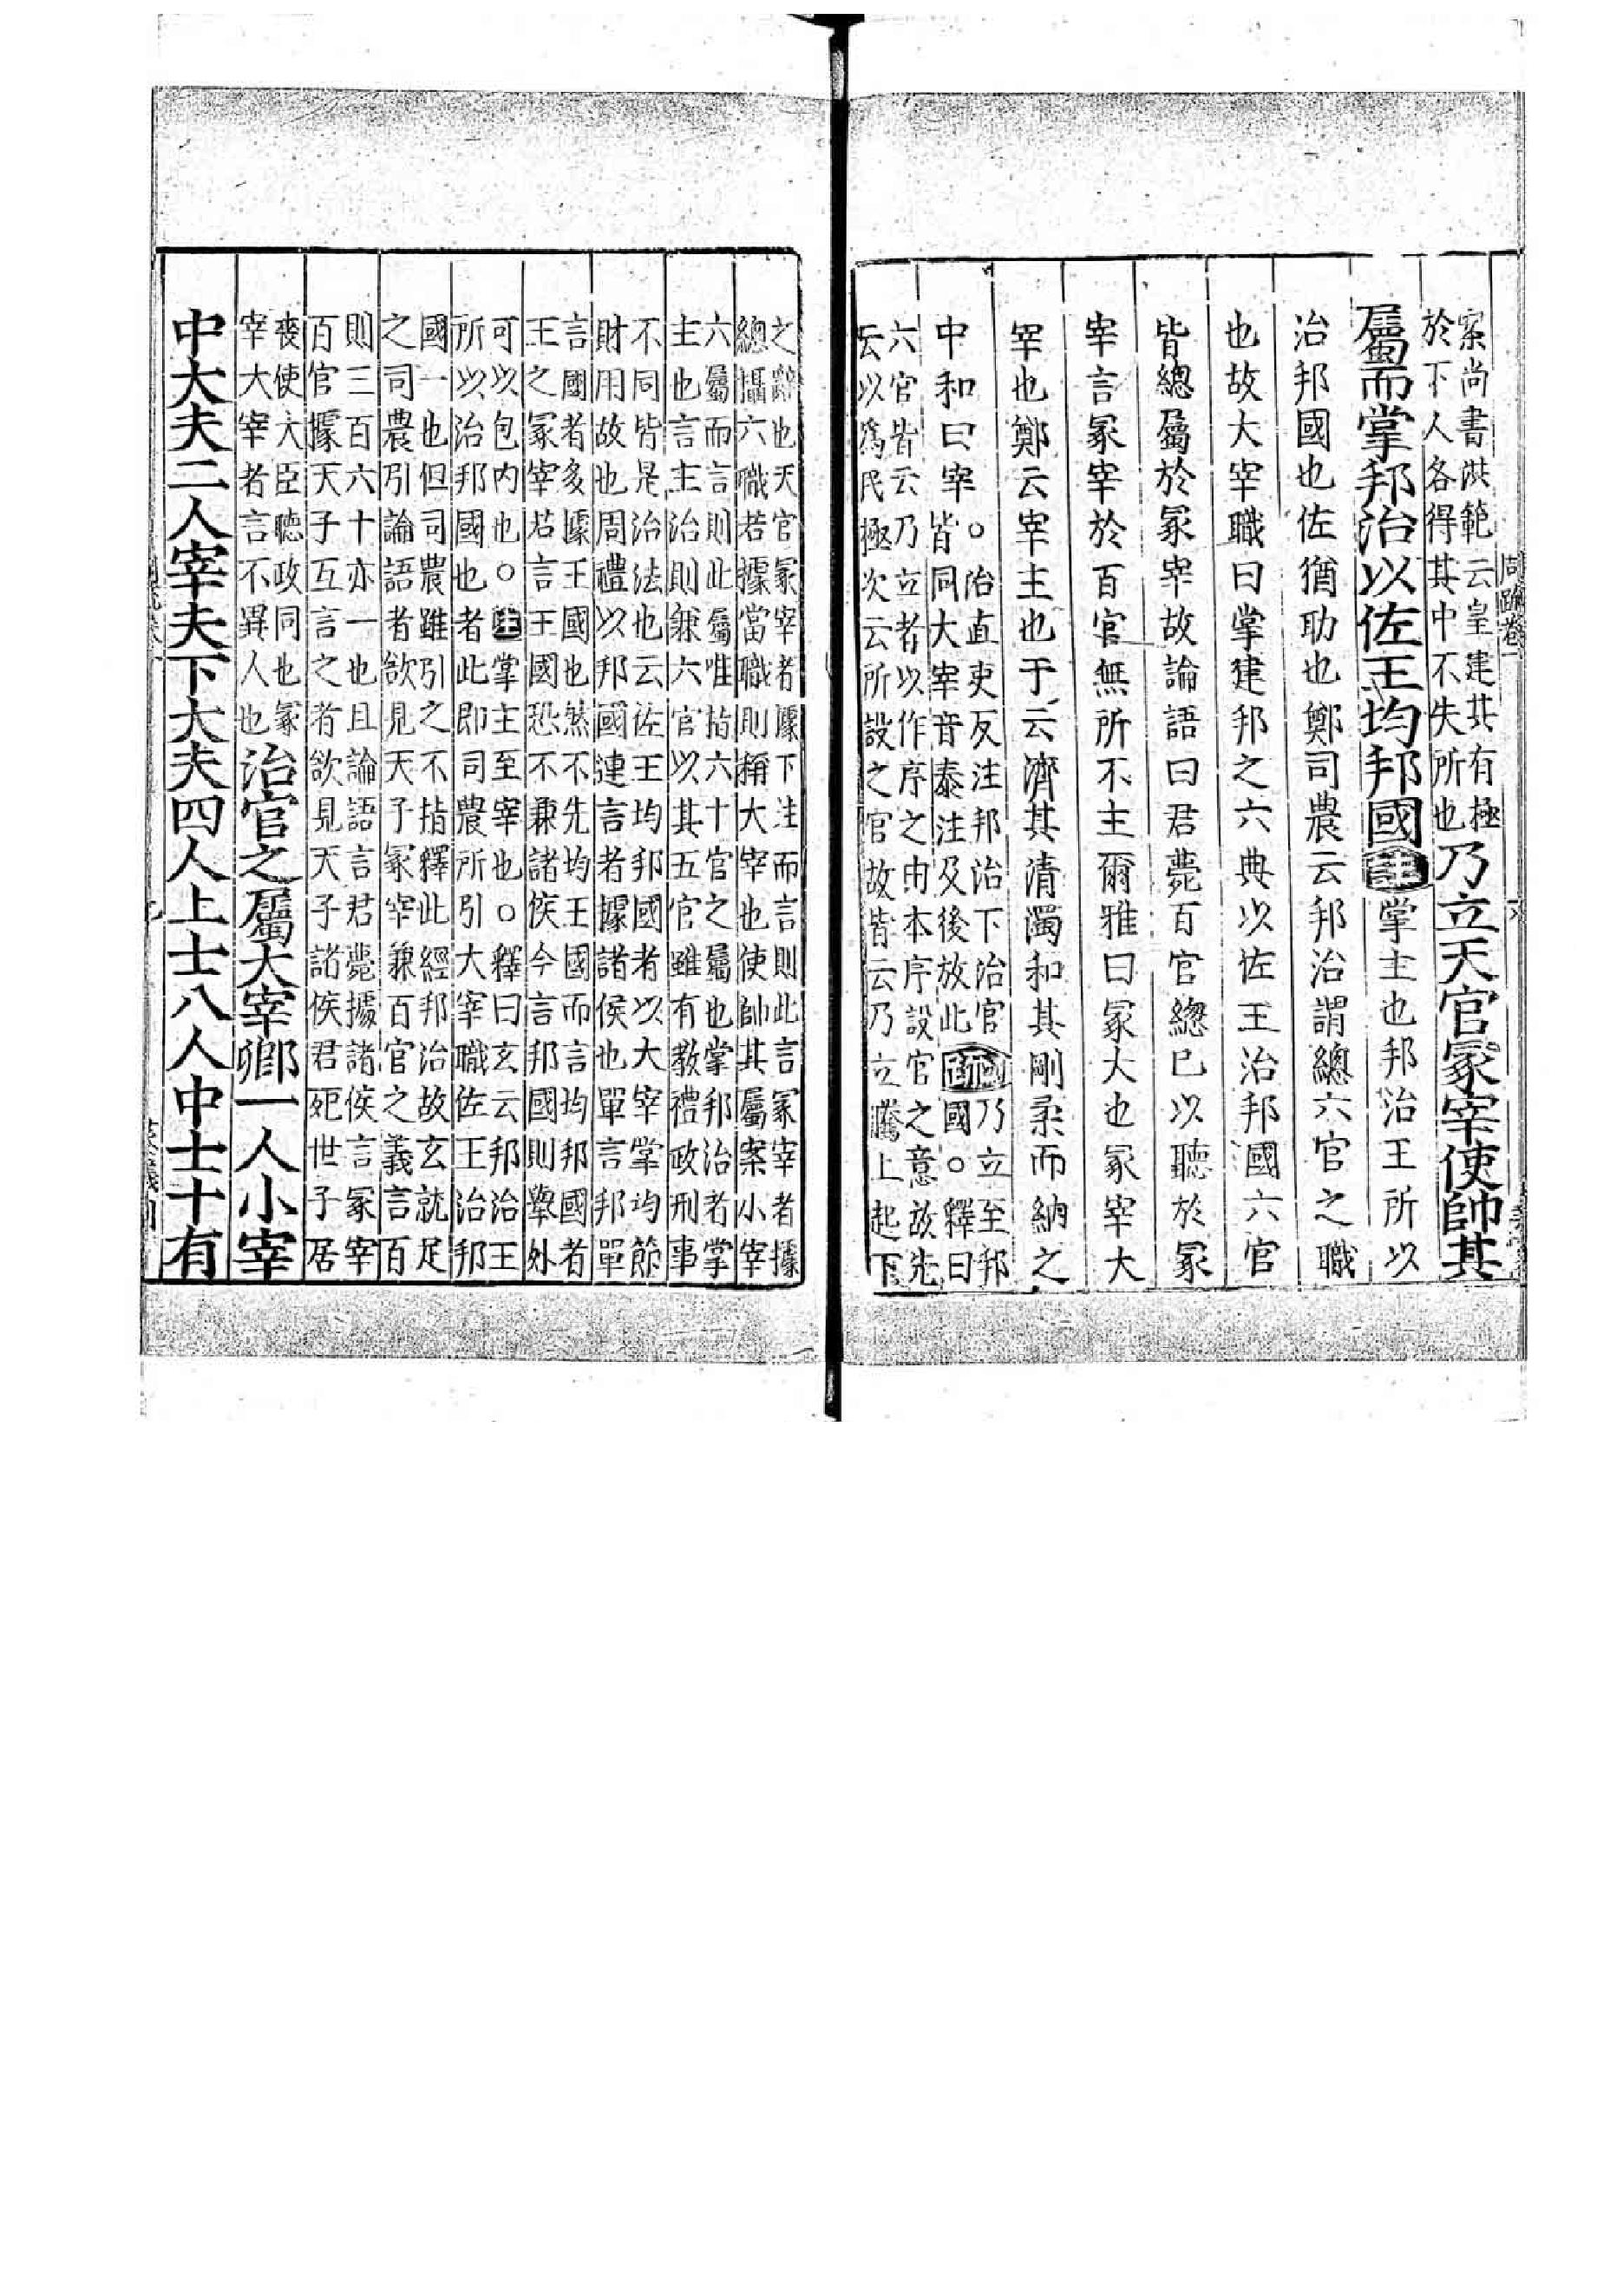 案尚書洪範云皇建其有極
於下人各得其中不失所也
乃立天官冢宰使帥其
屬而掌邦治以佐王均邦國
注
掌主也邦治王所以
治邦國也佐猶助也鄭司農云邦治謂總六官之職
也故大宰職曰掌建邦之六典以佐王治邦國六官
皆總屬於冢宰故論語曰君薨百官總已以聽於冢
宰言冢宰於百官無所不主爾雅曰冢大也冢宰大
宰也鄭云宰主也于云濟其清濁和其剛柔而納之
中和曰宰
。治直吏反注邦治下治官
皆同大宰音泰注及後放此
疏
乃立至邦
國。釋曰
六官皆云乃立者以作序之由本序設官之意故先
云以為民極次云所設之官故皆云乃立騰上起下
之辭也天官冢宰者據下注而言則此言冢宰者據
總攝六職若據當職則稱大宰也使帥其屬案小宰
六屬而言則此屬唯指六十官之屬也掌邦治者掌
主也言主治則兼六官以其五官雖有教禮政刑事
不同皆是治法也云佐王均邦國者以大宰掌均節
財用故也周禮以邦國連言者據諸侯也單言邦單
言國者多據王國也然不先均王國而言均邦國者
王之冢宰若言王國恐不兼諸侯今言邦國則舉外
可以包內也。注掌主至宰也。釋曰玄云邦治王
所以治邦國也者此即司農所引大宰職佐王治邦
國一也但司農雖引之不指釋此經邦治故玄就足
之司農引論語者欲見天子冢宰兼百官之義言百
則三百六十亦一也且論語言君薨據諸侯言冢宰
百官據天子互言之者欲見天子諸侯君死世子居
喪使大臣聽政同也冢
宰大宰者言不異人也
治官之屬大宰卿一人小宰
中大夫二人宰夫下大夫四人上士八人中士十有